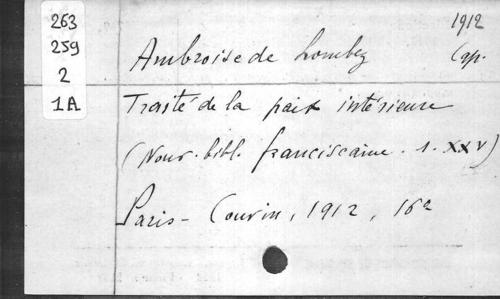 263
259
2
1A
1912
Ambroise de Lombez Cap.
Traité de la paix intérieure
(Nouv. bibl. franciscaine. 1. XXV)
Paris - Couvin, 1912, 16°